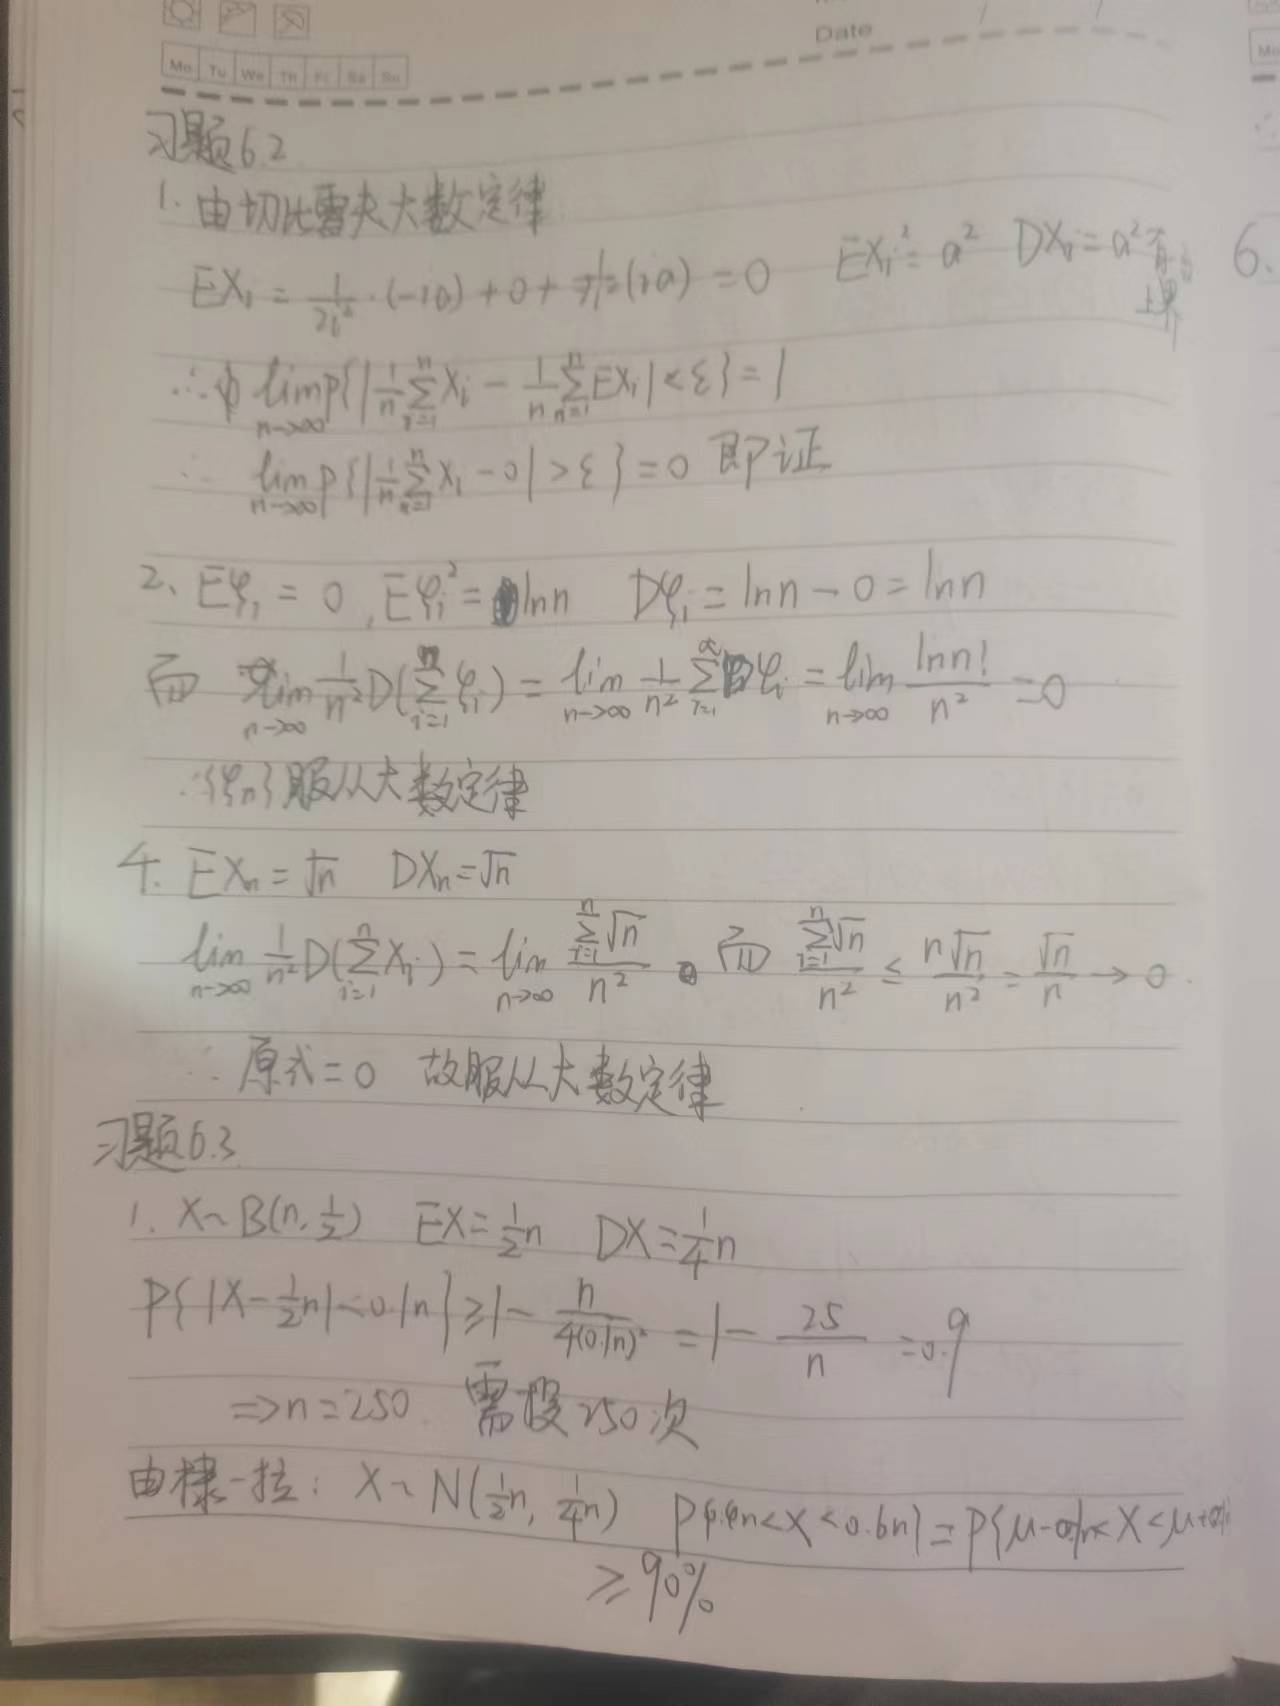 Date
Mo Tu We Th Fr Sa Su
习题6.2
1. 由切比雪夫大数定律
EX₁ = 1/(2i²)·(-ia) + 0 + (ia) = 0   EXᵢ² = a²   DXᵢ = a² 有上界
∴ lim_{n→∞} P{|1/n ∑_{i=1}^{n} Xᵢ - 1/n ∑_{n=1}^{n} EXᵢ| < ε} = 1
∴ lim_{n→∞} P{|1/n ∑_{i=1}^{n} Xᵢ - 0| > ε} = 0 即证
2、Eξᵢ = 0, Eξᵢ² = lnn   Dξᵢ = lnn - 0 = lnn
而 lim_{n→∞} 1/n² D(∑_{i=1}^{n} ξᵢ) = lim_{n→∞} 1/n² ∑_{i=1}^{∞} Dξᵢ = lim_{n→∞} lnn!/n² = 0
∴{ξₙ}服从大数定律
4. EXₙ = √n   DXₙ = √n
lim_{n→∞} 1/n² D(∑_{i=1}^{n} Xᵢ) = lim_{n→∞} ∑_{i=1}^{n}√n / n² 而 ∑_{i=1}^{n}√n / n² ≤ n√n/n² = √n/n → 0.
∴ 原式 = 0 故服从大数定律
习题6.3
1. X~B(n, 1/2)   EX = 1/2 n   DX = 1/4 n
P{|X - 1/2 n| < 0.1n} ≥ 1 - n/(4(0.1n)²) = 1 - 25/n = 0.9
⇒ n = 250 需投250次
由棣-拉: X~N(1/2 n, 1/4 n)   P{0.4n < X < 0.6n} = P{μ - 0.1n < X < μ +
≥ 90%
6.